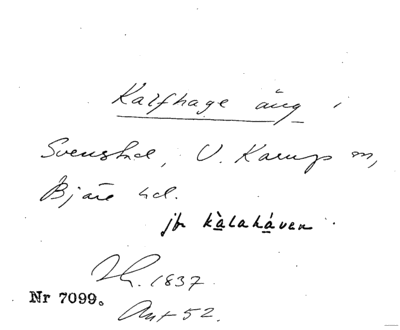 Kalfhage äng i
Svenstad, V. Karups sn,
Bjäre hd.
jfr kàlahávan
1837
Nr 7099.
Ant 52.